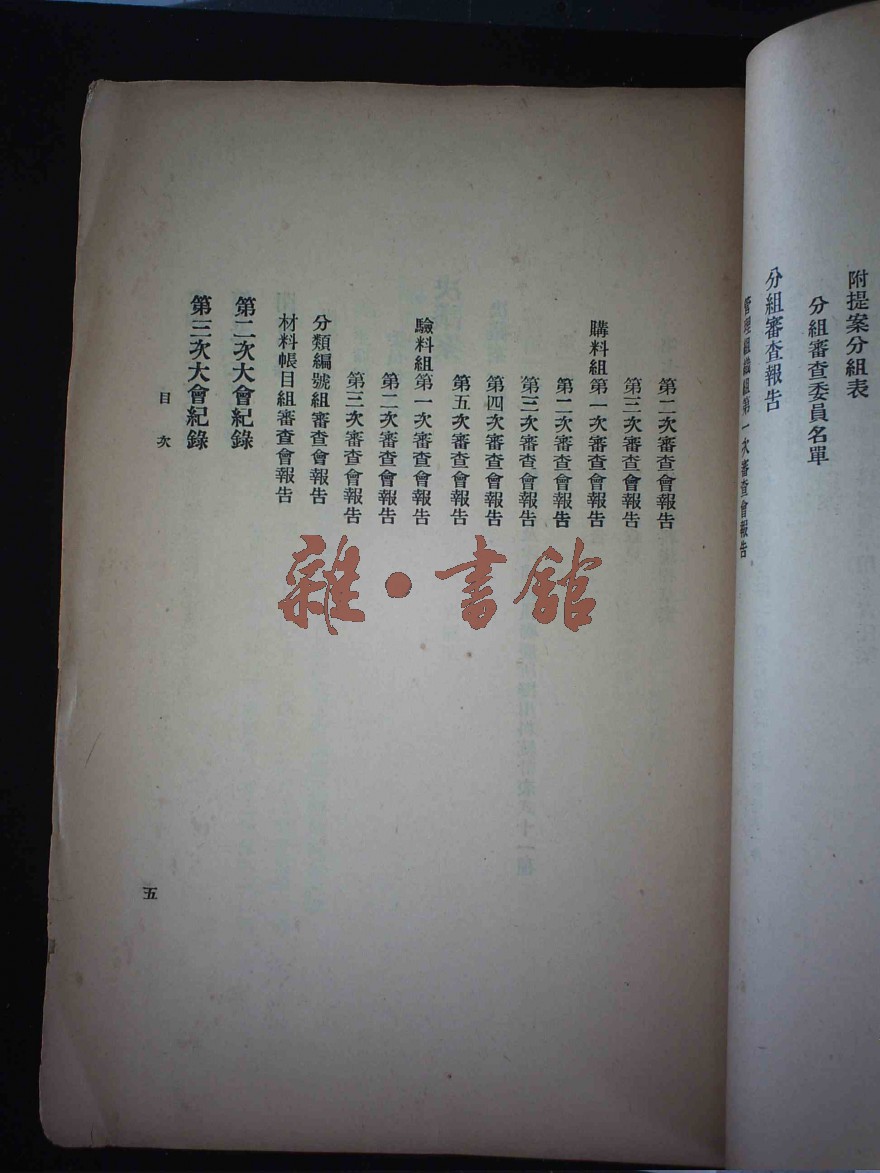 附提案分組表
分組審查委員名單
分組審查報告
管理組織組第一次審查會報告
第二次審查會報告
第三次審查會報告
購料組第一次審查會報告
第二次審查會報告
第三次審查會報告
第四次審查會報告
第五次審查會報告
驗料組第一次審查會報告
第二次審查會報告
第三次審查會報告
分類編號組審查會報告
材料帳目組審查會報告
第二次大會紀錄
第三次大會紀錄
目次
五
雜·書館